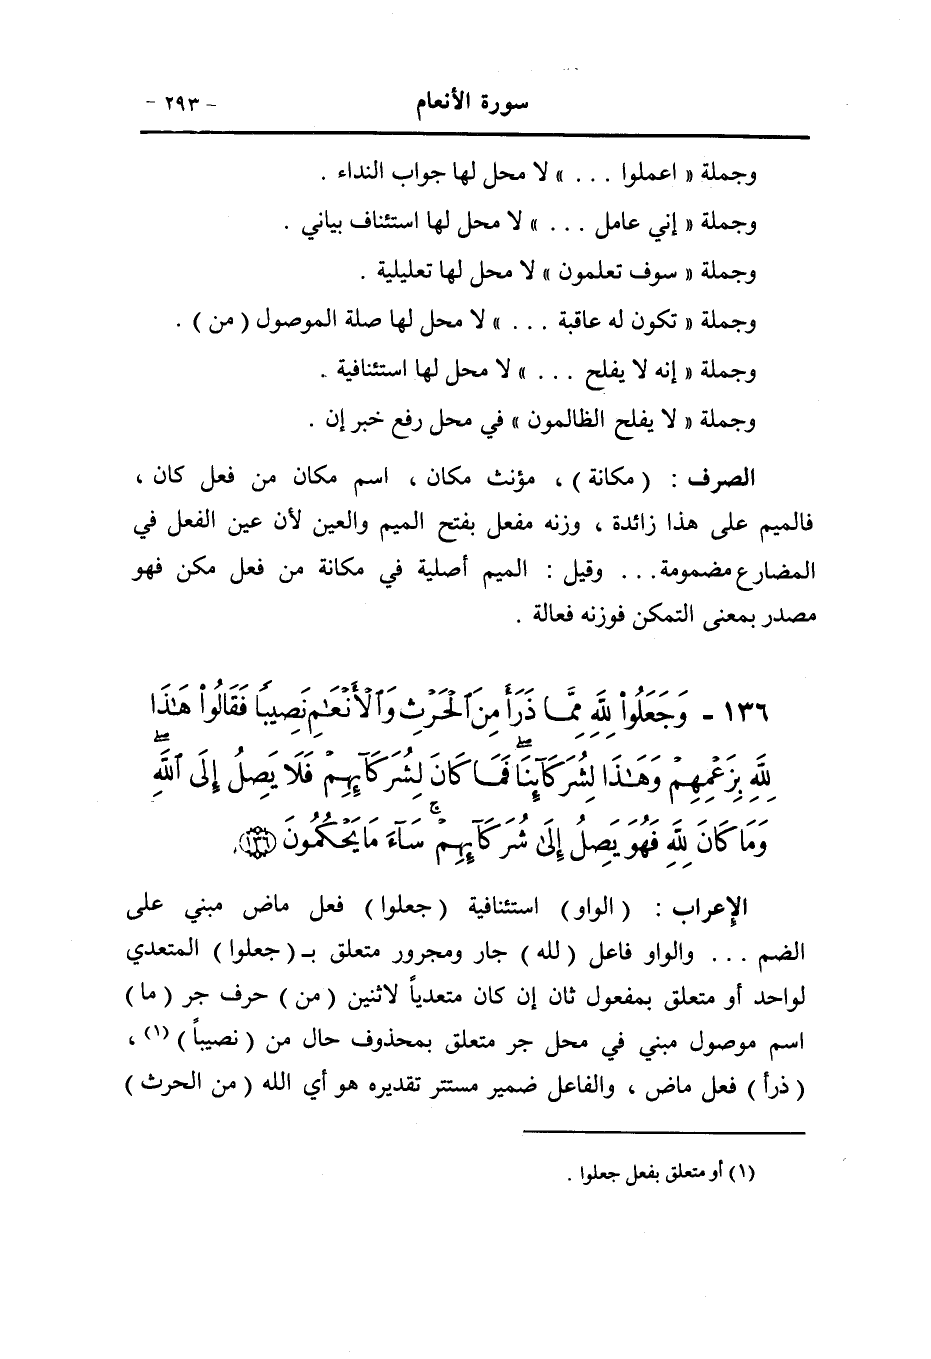 سورة الأنعام - ٢٩٣ -
وجملة « اعملوا ... » لا محل لها جواب النداء .
وجملة « إني عامل ... » لا محل لها استئناف بياني .
وجملة « سوف تعلمون » لا محل لها تعليلية .
وجملة « تكون له عاقبة ... » لا محل لها صلة الموصول ( من ) .
وجملة « إنه لا يفلح ... » لا محل لها استئنافية .
وجملة « لا يفلح الظالمون » في محل رفع خبر إن .
الصرف : ( مكانة ) ، مؤنث مكان ، اسم مكان من فعل كان ،
فالميم على هذا زائدة ، وزنه مفعل بفتح الميم والعين لأن عين الفعل في
المضارع مضمومة ... وقيل : الميم أصلية في مكانة من فعل مكن فهو
مصدر بمعنى التمكن فوزنه فعالة .
١٣٦ - وَجَعَلُواْ لِلَّهِ مِمَّا ذَرَأَ مِنَ ٱلْحَرْثِ وَٱلْأَنْعَٰمِ نَصِيبًا فَقَالُواْ هَٰذَا
لِلَّهِ بِزَعْمِهِمْ وَهَٰذَا لِشُرَكَآئِنَاۖ فَمَا كَانَ لِشُرَكَآئِهِمْ فَلَا يَصِلُ إِلَى ٱللَّهِۖ
وَمَا كَانَ لِلَّهِ فَهُوَ يَصِلُ إِلَىٰ شُرَكَآئِهِمْۚ سَآءَ مَا يَحْكُمُونَ ﴿١٣٦﴾
الإعراب : ( الواو ) استئنافية ( جعلوا ) فعل ماض مبني على
الضم ... والواو فاعل ( لله ) جار ومجرور متعلق بـ ( جعلوا ) المتعدي
لواحد أو متعلق بمفعول ثان إن كان متعدياً لاثنين ( من ) حرف جر ( ما )
اسم موصول مبني في محل جر متعلق بمحذوف حال من ( نصيباً ) (١) ،
( ذرأ ) فعل ماض ، والفاعل ضمير مستتر تقديره هو أي الله ( من الحرث )
(١) أو متعلق بفعل جعلوا .